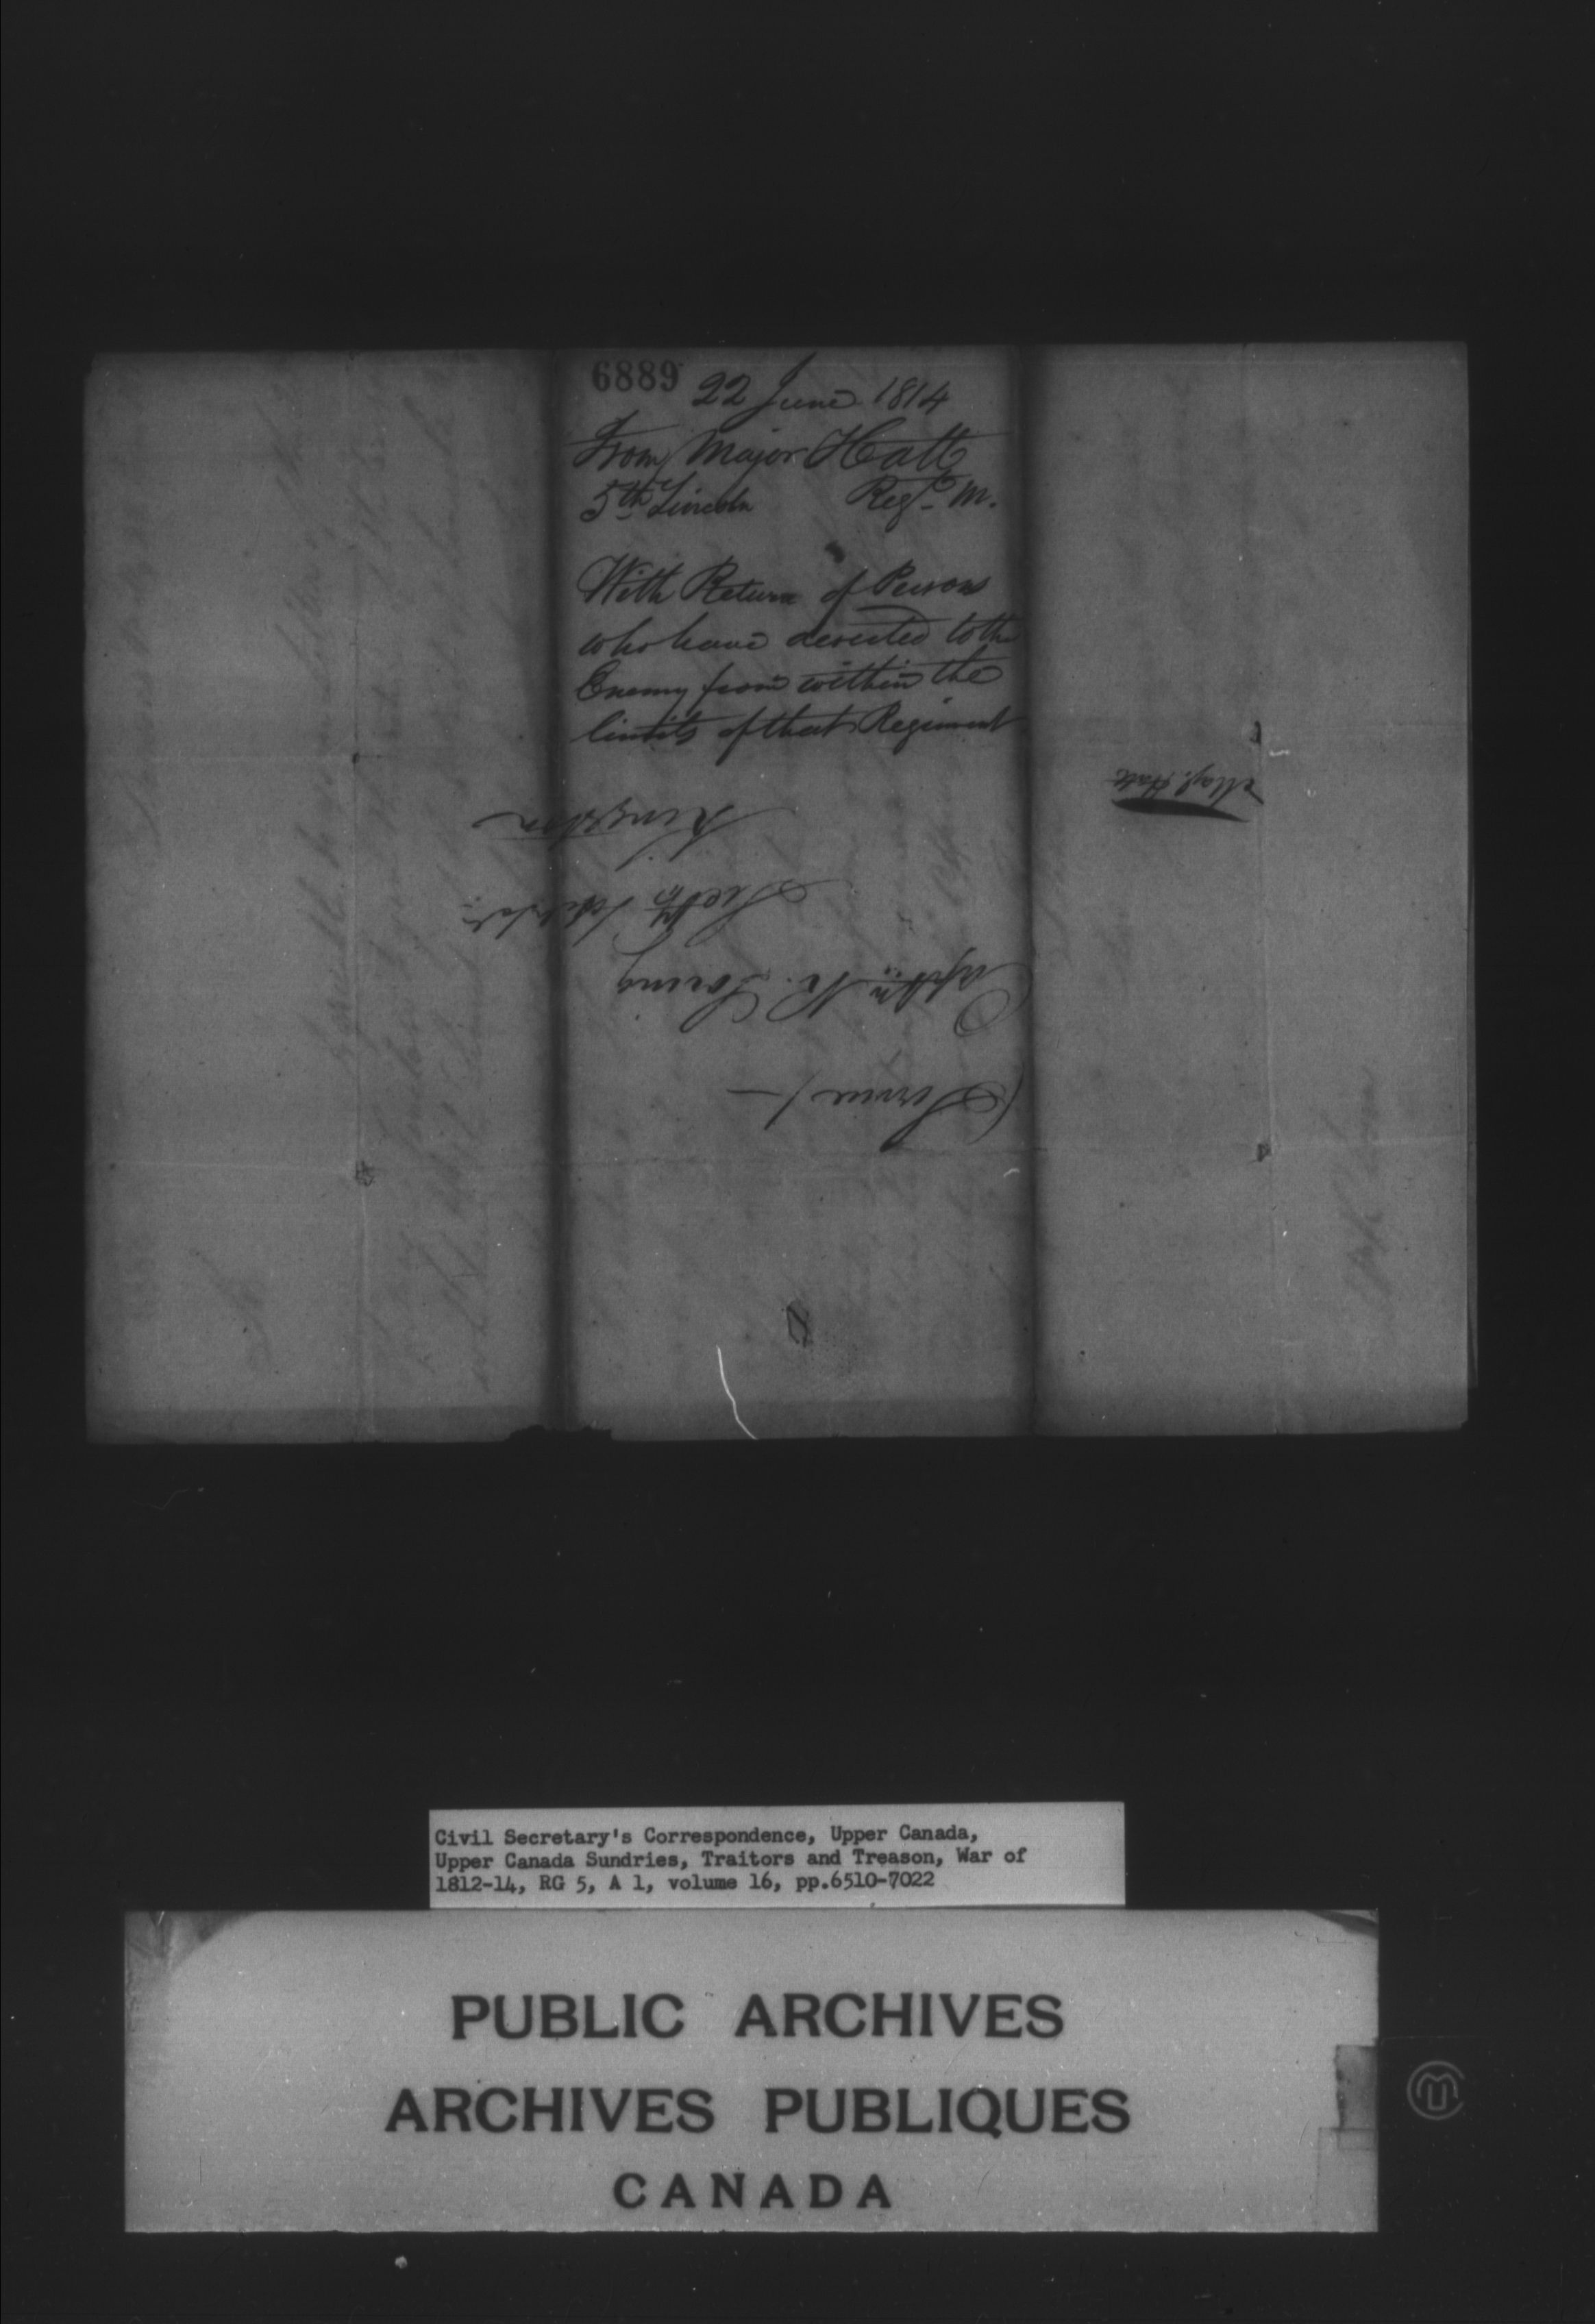 6889
22 June 1814
From Major Hatt
5th Lincoln Regt. M.
With Return of Persons
who have deserted to the
Enemy from within the
limits of that Regiment
(Service)
Captn. R. Loring
Secty
Kingston
Majr. Hatt
Civil Secretary's Correspondence, Upper Canada,
Upper Canada Sundries, Traitors and Treason, War of
1812-14, RG 5, A 1, volume 16, pp.6510-7022
PUBLIC ARCHIVES
ARCHIVES PUBLIQUES
CANADA